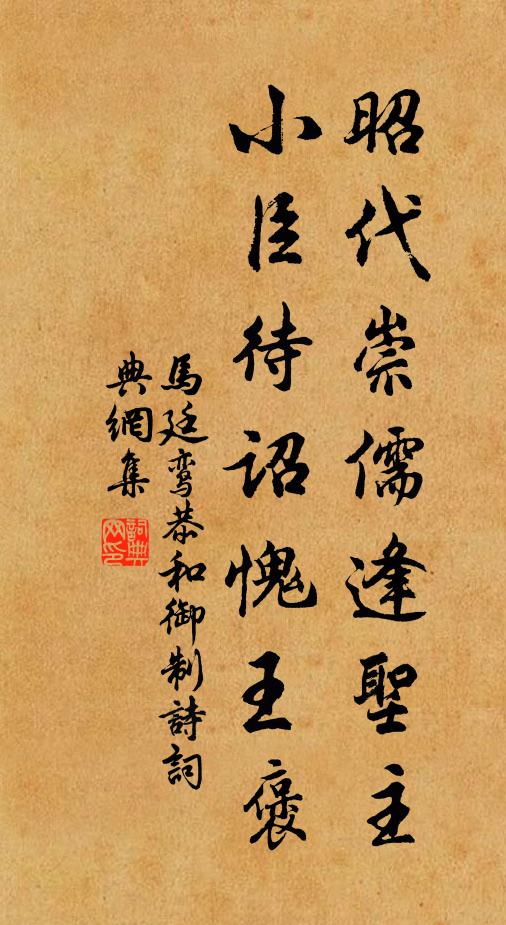 昭代崇儒逢聖主
小臣待詔愧王褒
馬廷鸾恭和御制詩詞
典網集
詞典网印